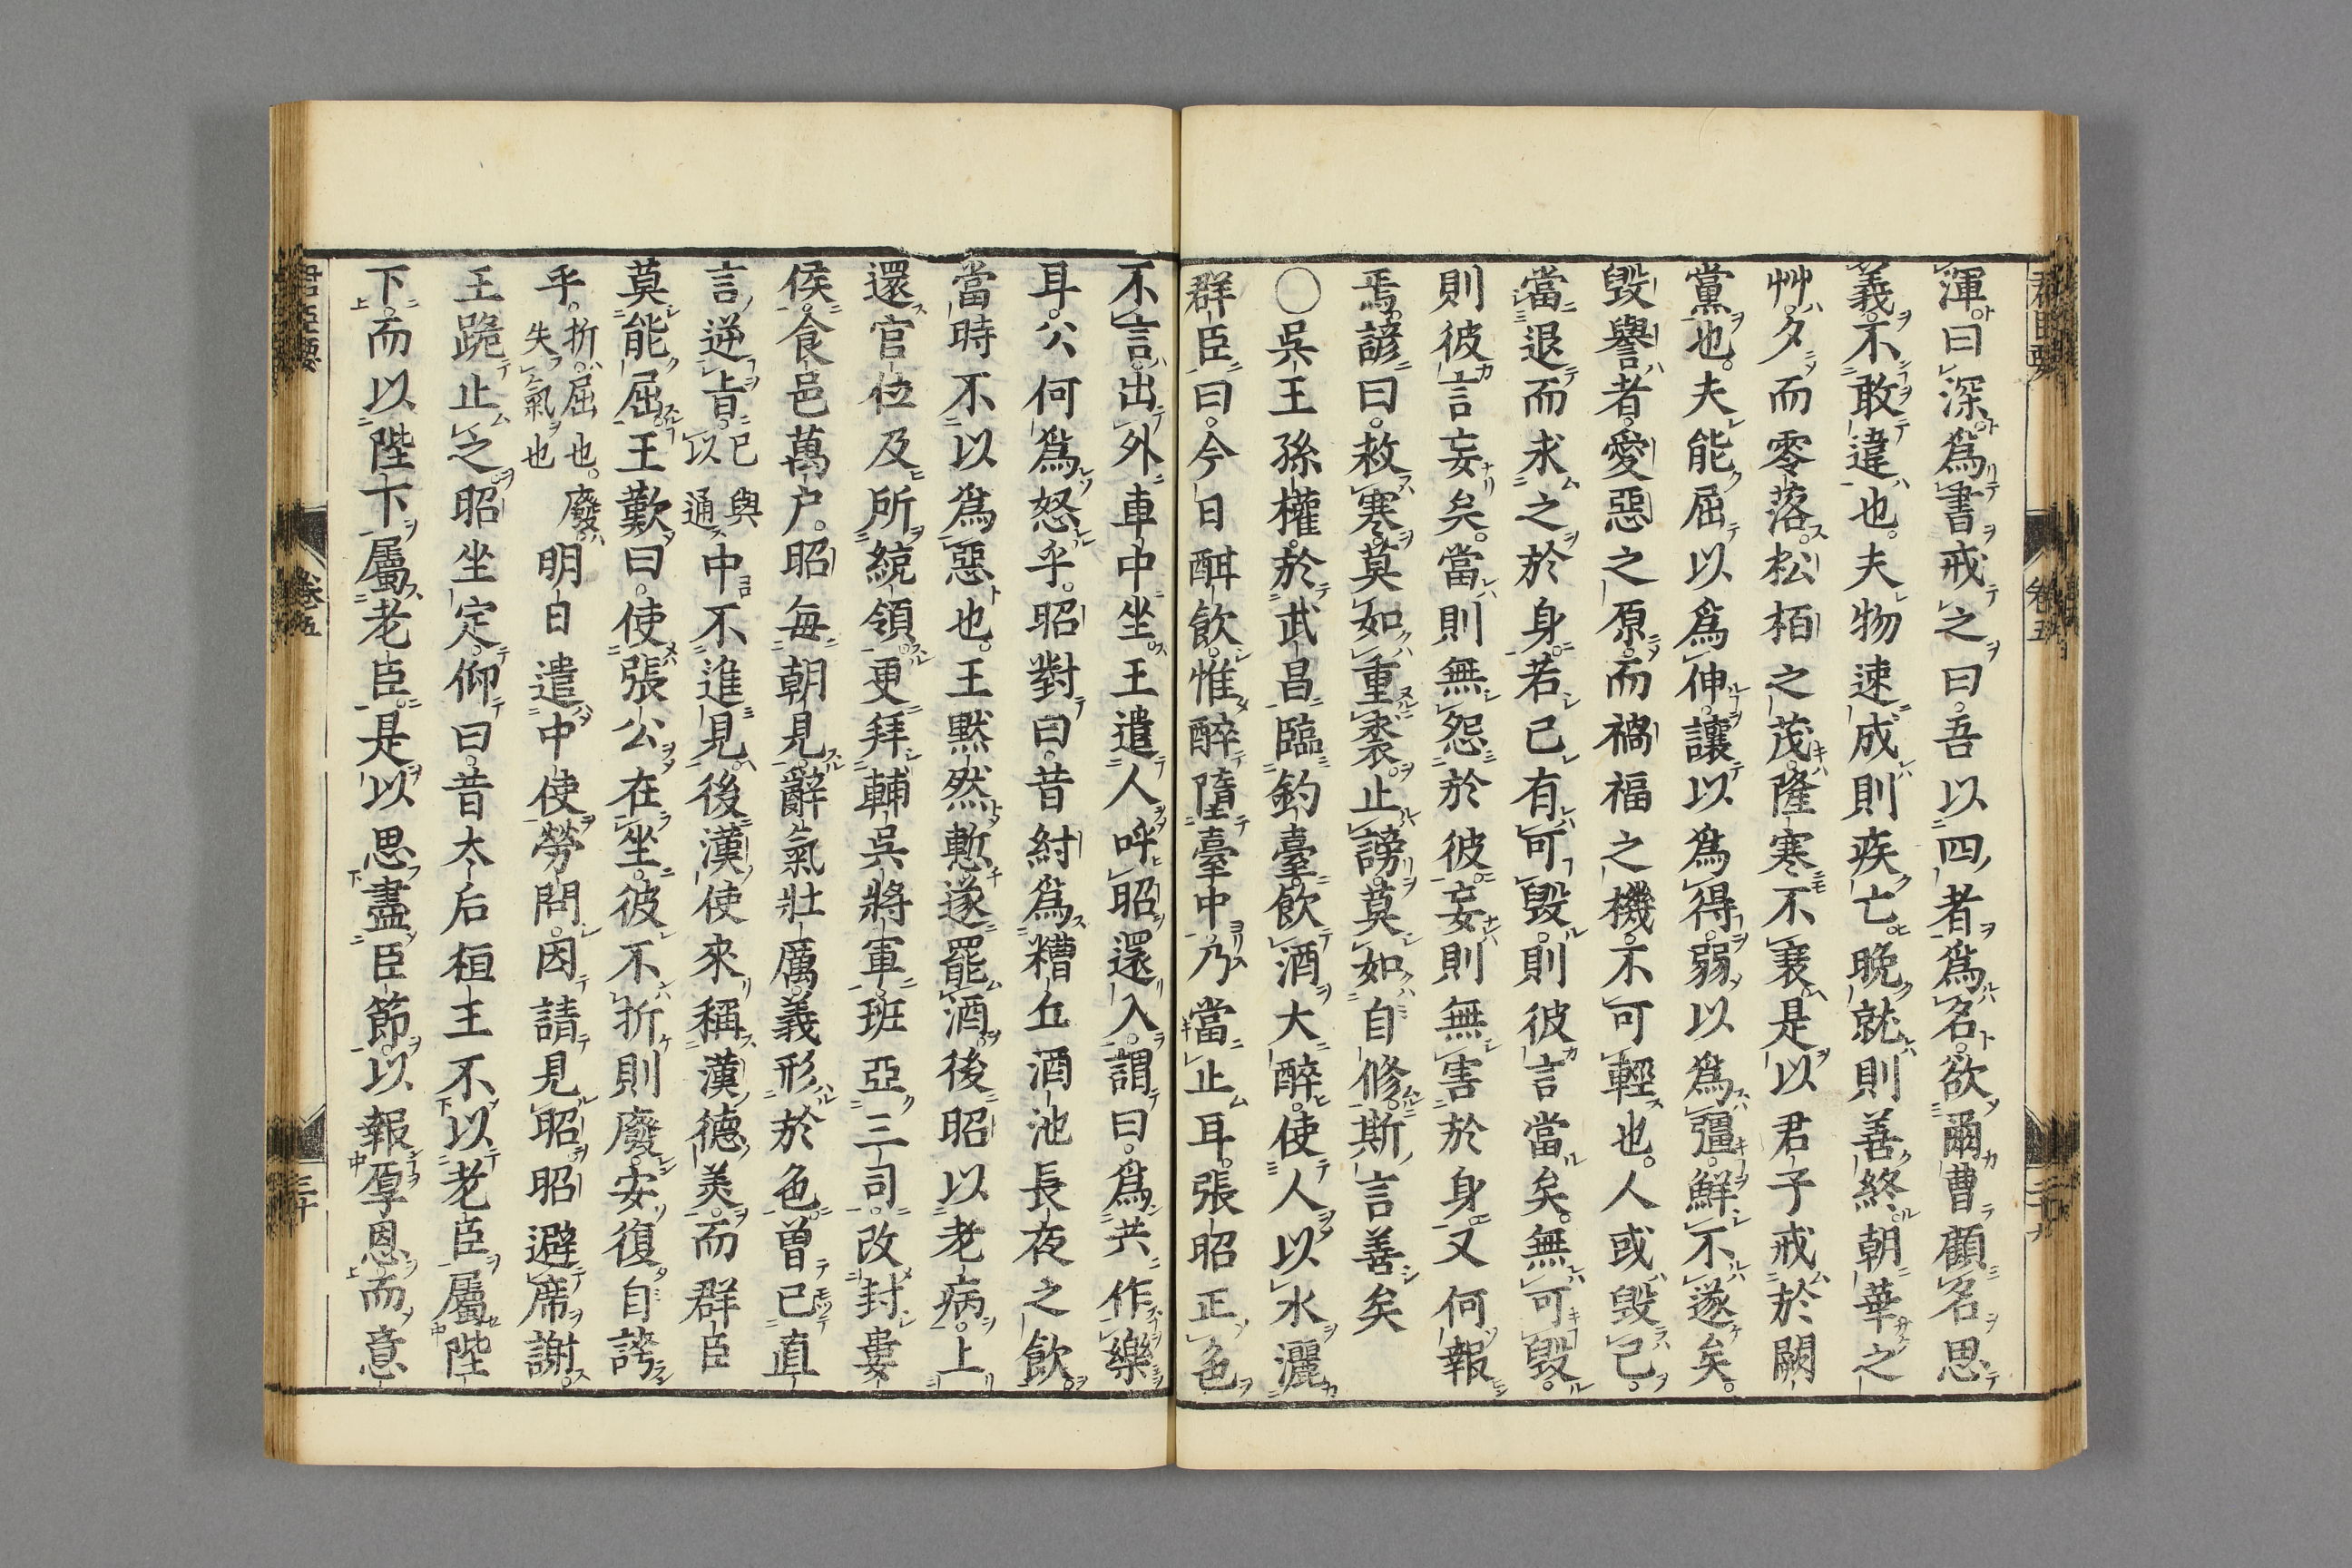 渾曰深爲書戒之曰吾以四者爲名欲爾曹顧名思
義不敢違也夫物速成則疾亡晩就則善終朝華之
艸夕而零落松栢之茂隆寒不衰是以君子戒於闕
黨也夫能屈以爲伸讓以爲得弱以爲彊鮮不遂矣
毀譽者愛惡之原而禍福之機不可輕也人或毀己
當退而求之於身若己有可毀則彼言當矣無可毀
則彼言妄矣當則無怨於彼妄則無害於身又何報
焉諺曰救寒莫如重裘止謗莫如自修斯言善矣
〇吳王孫權於武昌臨釣臺飲酒大醉使人以水灑
群臣曰今日酣飲惟醉墮臺中乃當止耳張昭正色
不言出外車中坐王遣人呼昭還入謂曰爲共作樂
耳公何爲怒乎昭對曰昔紂爲糟丘酒池長夜之飲
當時不以爲惡也王默然慙遂罷酒後昭以老病上
還官位及所統領更拜輔吳將軍班亞三司改封婁
侯食邑萬户昭每朝見辭氣壯厲義形於色曾己直
言逆旨已與以通中不進見後漢使來稱漢德美而群臣
莫能屈王歎曰使張公在坐彼不折則廢安復自誇
乎折屈也廢失氣也明日遣中使勞問因請見昭昭避席謝
王跪止之昭坐定仰曰昔太后桓王不以老臣屬陛
下而以陛下屬老臣是以思盡臣節以報厚恩而意
卷五
三十